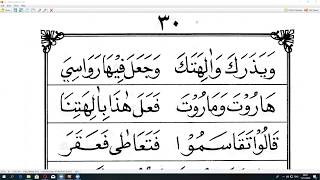 ٣٠
وَيَذَرَكَ وَاٰلِهَتَكَ وَجَعَلَ فِيْهَا رَوَاسِيَ
هَارُوْتَ وَمَارُوْتَ فَعَلَ هٰذَا بِاٰلِهَتِنَا
قَالُوْا تَقَاسَمُوْا فَتَعَاطٰى فَعَقَرَ